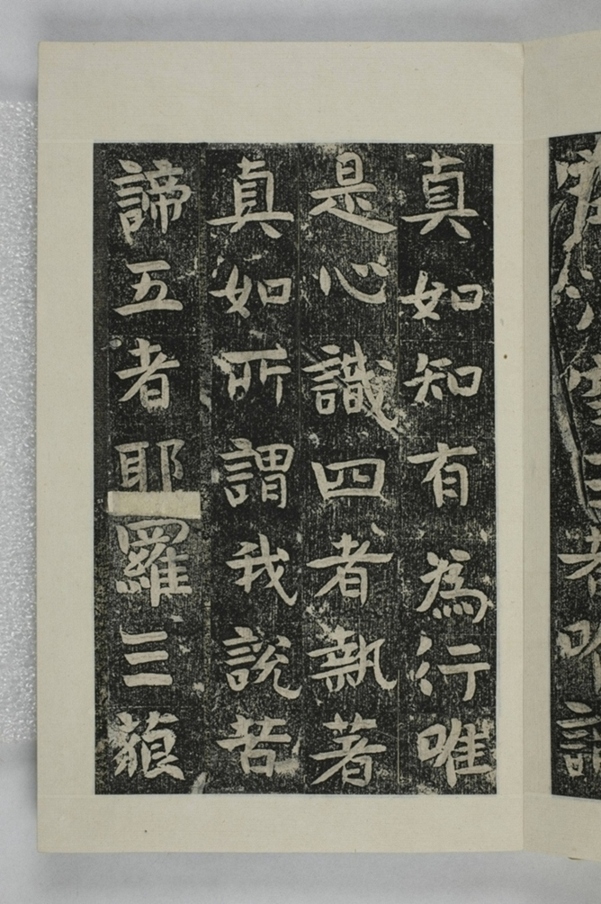 真如知有為行唯
是心識四者執著
真如所謂我說苦
諦五者耶羅三藐